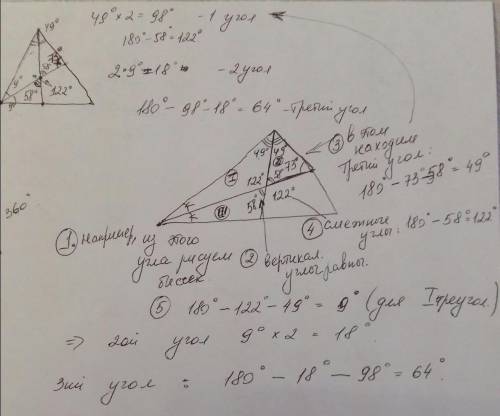 49° × 2 = 98° - 1 угол
180° - 58° = 122°
2 · 9° = 18° - 2 угол
180° - 98° - 18° = 64° - третий угол
49°
9°
9°
58°
73°
58°
122°
360°
49°
49°
I
II
III
73°
58°
122°
122°
58°
③ в этом
находим
третий угол:
180° - 73° - 58° = 49°
④ смежные
углы: 180° - 58° = 122°
① Например, из этого
угла рисуем
биссек.
② вертикал.
углы равны.
⑤ 180° - 122° - 49° = 9° (для I треугол.)
⇒ 2ой угол 9° × 2 = 18°.
3ий угол : 180° - 18° - 98° = 64°.